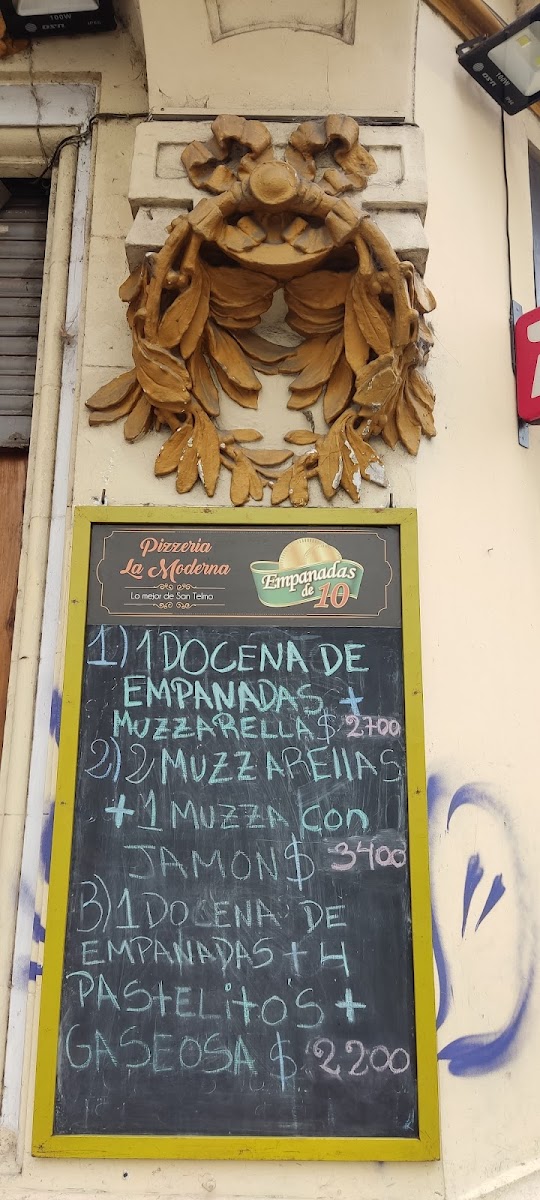 100W
100W
Pizzeria
La Moderna
Lo mejor de San Telmo
Empanadas
de 10
1) 1 DOCENA DE
EMPANADAS +
MUZZARELLA $ 2700
2) 2 MUZZAREllAS
+ 1 MUZZA con
JAMON $ 3400
3) 1 DOCENA DE
EMPANADAS + 4
PAStELitoS +
GASEOSA $ 2200